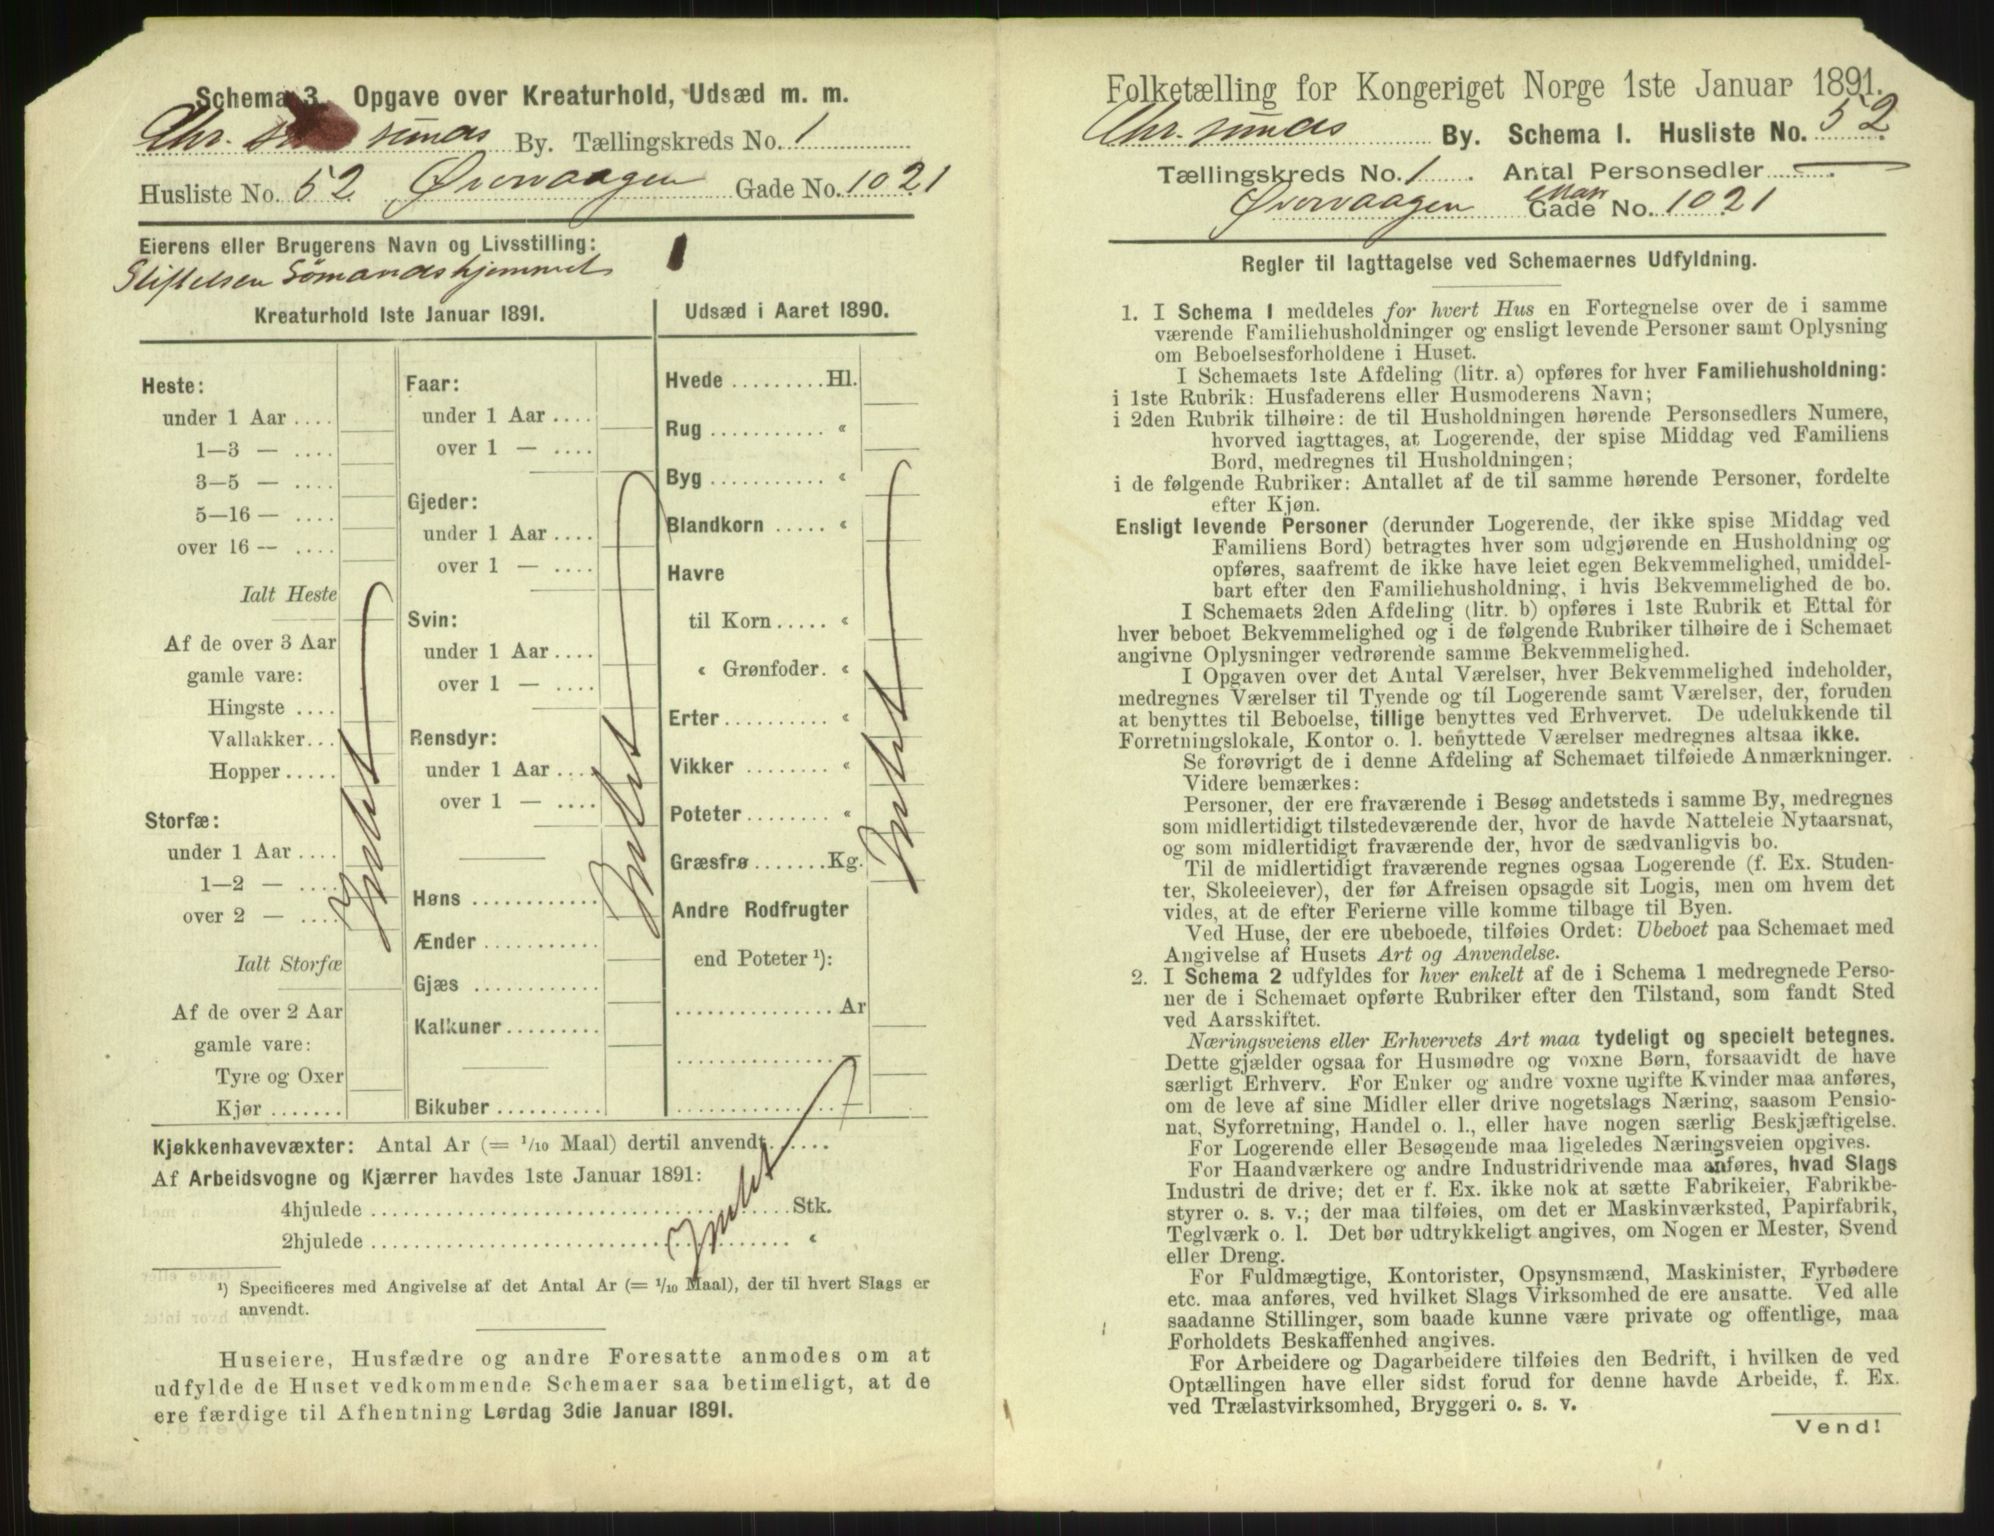 Schema 3. Opgave over Kreaturhold, Udsæd m. m.
Chr. sunds By. Tællingskreds No. 1
Husliste No. 52 Øvervaagen Gade No. 1021
Eierens eller Brugerens Navn og Livsstilling:
Stiftelsen Sømandshjemmet
Kreaturhold 1ste Januar 1891.
Heste:
under 1 Aar ....
1—3 — ....
3—5 — ....
5—16 — ....
over 16 — ....
Ialt Heste
Af de over 3 Aar
gamle vare:
Hingste ....
Vallakker...
Hopper.....
Storfæ:
under 1 Aar ....
1—2 — ....
over 2 — ....
Ialt Storfæ
Af de over 2 Aar
gamle vare:
Tyre og Oxer
Kjør .......
Intet
Faar:
under 1 Aar ....
over 1 — ....
Gjeder:
under 1 Aar ....
over 1 — ....
Svin:
under 1 Aar ....
over 1 — ....
Rensdyr:
under 1 Aar ....
over 1 — ....
Høns ............
Ænder ...........
Gjæs ............
Kalkuner.........
Bikuber ..........
Intet
Udsæd i Aaret 1890.
Hvede .........Hl.
Rug ........... „
Byg ........... „
Blandkorn ..... „
Havre
til Korn ..... „
„ Grønfoder. „
Erter .......... „
Vikker ........ „
Poteter ........ „
Græsfrø .......Kg.
Andre Rodfrugter
end Poteter ¹):
...............Ar
Intet
Kjøkkenhavevæxter: Antal Ar (= 1/10 Maal) dertil anvendt......
Af Arbeidsvogne og Kjærrer havdes 1ste Januar 1891:
4hjulede ........................................Stk.
2hjulede ........................................ „
Intet
¹) Specificeres med Angivelse af det Antal Ar (= 1/10 Maal), der til hvert Slags er
anvendt.
Huseiere, Husfædre og andre Foresatte anmodes om at
udfylde de Huset vedkommende Schemaer saa betimeligt, at de
ere færdige til Afhentning Lørdag 3die Januar 1891.
Folketælling for Kongeriget Norge 1ste Januar 1891.
Chr. sunds By. Schema 1. Husliste No. 52
Tællingskreds No. 1 Antal Personsedler —
Øvervaagen Matr Gade No. 1021
Regler til Iagttagelse ved Schemaernes Udfyldning.
1. I Schema 1 meddeles for hvert Hus en Fortegnelse over de i samme
værende Familiehusholdninger og ensligt levende Personer samt Oplysning
om Beboelsesforholdene i Huset.
I Schemaets 1ste Afdeling (litr. a) opføres for hver Familiehusholdning:
i 1ste Rubrik: Husfaderens eller Husmoderens Navn;
i 2den Rubrik tilhøire: de til Husholdningen hørende Personsedlers Numere,
hvorved iagttages, at Logerende, der spise Middag ved Familiens
Bord, medregnes til Husholdningen;
i de følgende Rubriker: Antallet af de til samme hørende Personer, fordelte
efter Kjøn.
Ensligt levende Personer (derunder Logerende, der ikke spise Middag ved
Familiens Bord) betragtes hver som udgjørende en Husholdning og
opføres, saafremt de ikke have leiet egen Bekvemmelighed, umiddel-
bart efter den Familiehusholdning, i hvis Bekvemmelighed de bo.
I Schemaets 2den Afdeling (litr. b) opføres i 1ste Rubrik et Ettal for
hver beboet Bekvemmelighed og i de følgende Rubriker tilhøire de i Schemaet
angivne Oplysninger vedrørende samme Bekvemmelighed.
I Opgaven over det Antal Værelser, hver Bekvemmelighed indeholder,
medregnes Værelser til Tyende og til Logerende samt Værelser, der, foruden
at benyttes til Beboelse, tillige benyttes ved Erhvervet. De udelukkende til
Forretningslokale, Kontor o. l. benyttede Værelser medregnes altsaa ikke.
Se forøvrigt de i denne Afdeling af Schemaet tilføiede Anmærkninger.
Videre bemærkes:
Personer, der ere fraværende i Besøg andetsteds i samme By, medregnes
som midlertidigt tilstedeværende der, hvor de havde Natteleie Nytaarsnat,
og som midlertidigt fraværende der, hvor de sædvanligvis bo.
Til de midlertidigt fraværende regnes ogsaa Logerende (f. Ex. Studen-
ter, Skoleeiever), der før Afreisen opsagde sit Logis, men om hvem det
vides, at de efter Ferierne ville komme tilbage til Byen.
Ved Huse, der ere ubeboede, tilføies Ordet: Ubeboet paa Schemaet med
Angivelse af Husets Art og Anvendelse.
2. I Schema 2 udfyldes for hver enkelt af de i Schema 1 medregnede Perso-
ner de i Schemaet opførte Rubriker efter den Tilstand, som fandt Sted
ved Aarsskiftet.
Næringsveiens eller Erhvervets Art maa tydeligt og specielt betegnes.
Dette gjælder ogsaa for Husmødre og voxne Børn, forsaavidt de have
særligt Erhverv. For Enker og andre voxne ugifte Kvinder maa anføres,
om de leve af sine Midler eller drive nogetslags Næring, saasom Pensio-
nat, Syforretning, Handel o. l., eller have nogen særlig Beskjæftigelse.
For Logerende eller Besøgende maa ligeledes Næringsveien opgives.
For Haandværkere og andre Industridrivende maa anføres, hvad Slags
Industri de drive; det er f. Ex. ikke nok at sætte Fabrikeier, Fabrikbe-
styrer o. s. v.; der maa tilføies, om det er Maskinværksted, Papirfabrik,
Teglværk o. l. Det bør udtrykkeligt angives, om Nogen er Mester, Svend
eller Dreng.
For Fuldmægtige, Kontorister, Opsynsmænd, Maskinister, Fyrbødere
etc. maa anføres, ved hvilket Slags Virksomhed de ere ansatte. Ved alle
saadanne Stillinger, som baade kunne være private og offentlige, maa
Forholdets Beskaffenhed angives.
For Arbeidere og Dagarbeidere tilføies den Bedrift, i hvilken de ved
Optællingen have eller sidst forud for denne havde Arbeide, f. Ex.
ved Trælastvirksomhed, Bryggeri o. s. v.
Vend!